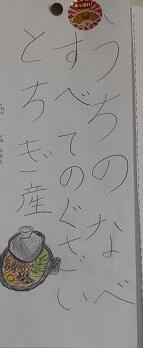 うちのなべ
すべてのぐざい
とちぎ産